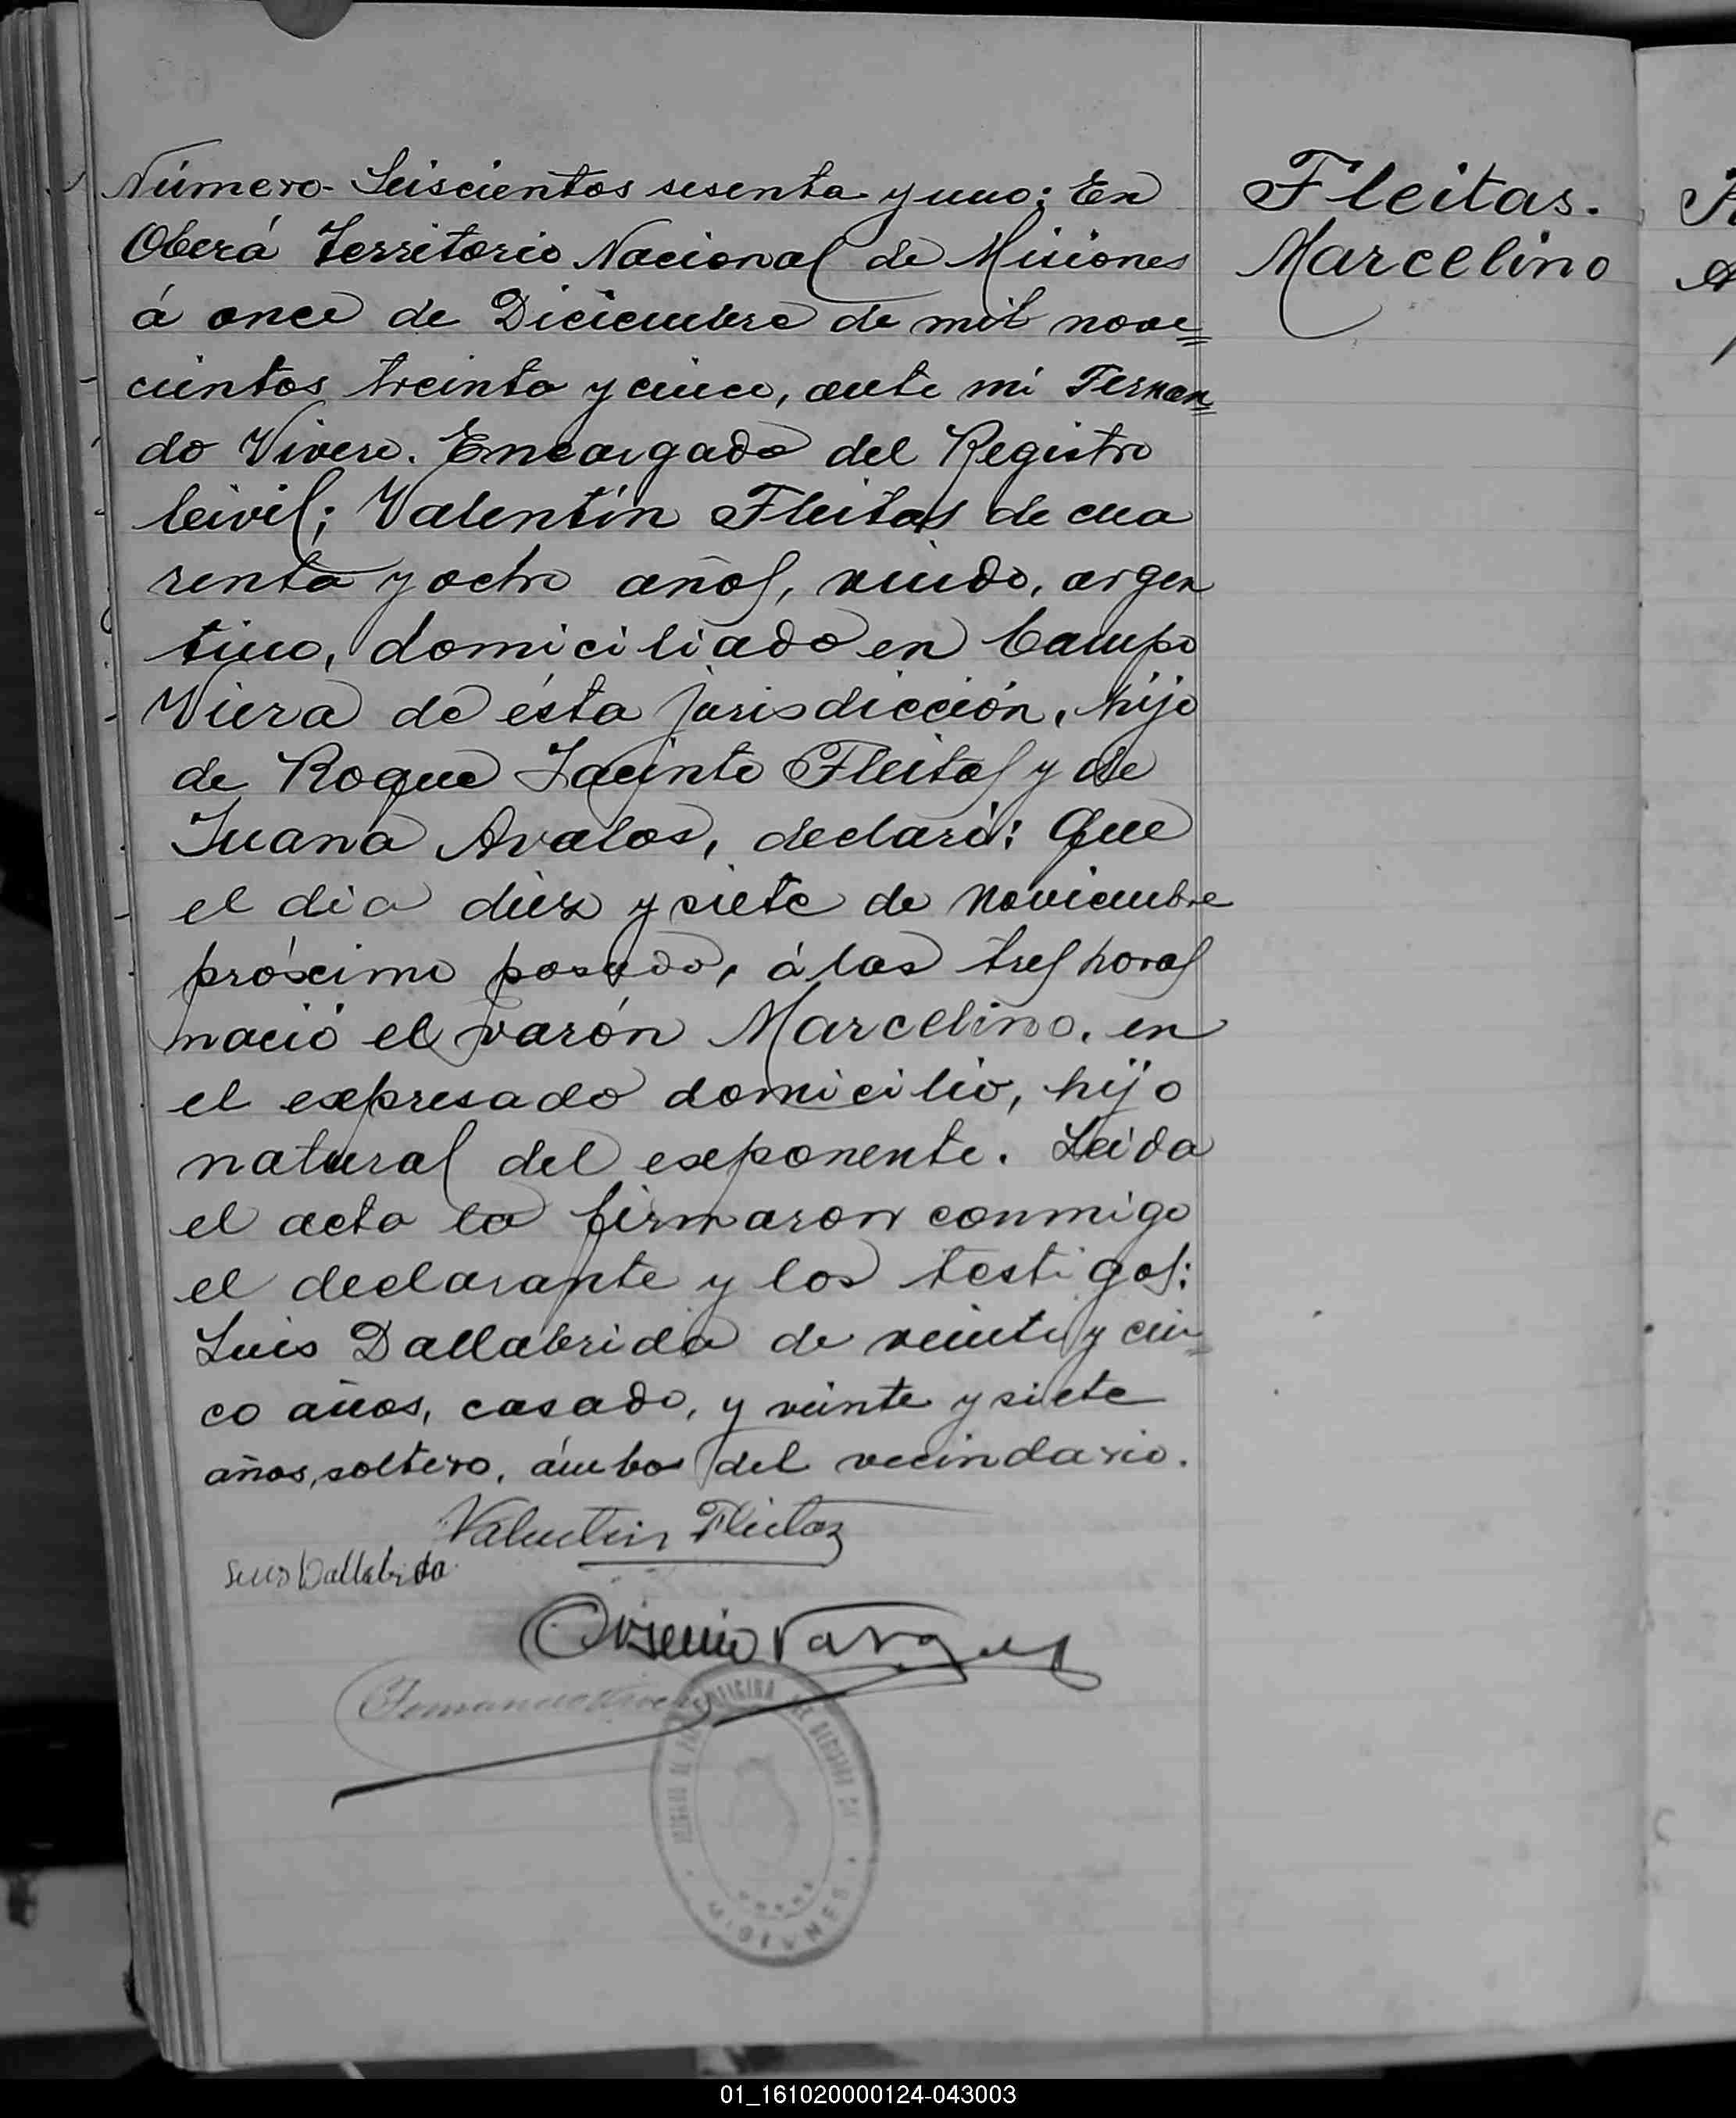 Número Seiscientos sesenta y uno: En
Oberá Territorio Nacional de Misiones
á once de Diciembre de mil nove=
cientos treinta y cinco, ante mi Fernan=
do Vivero. Encargado del Registro
Civil; Valentín Fleitas de cua
renta y ocho años, viudo, argen
tino, domiciliado en Campo
Viera de ésta jurisdicción, hijo
de Roque Jacinto Fleitas y de
Juana Avalos, declaró: Que
el dia diez y siete de Noviembre
próximo pasado, á las tres horas
nació el varón Marcelino, en
el expresado domicilio, hijo
natural del exponente. Leida
el acta la firmaron conmigo
el declarante y los testigos:
Luis Dallabrida de veinte y cin=
co años, casado, y veinte y siete
años, soltero, ámbos del vecindario.
Valentin Fleitas
Luis Dallabrida
Vargas
MISIONES
Fleitas.
Marcelino
01_161020000124-043003